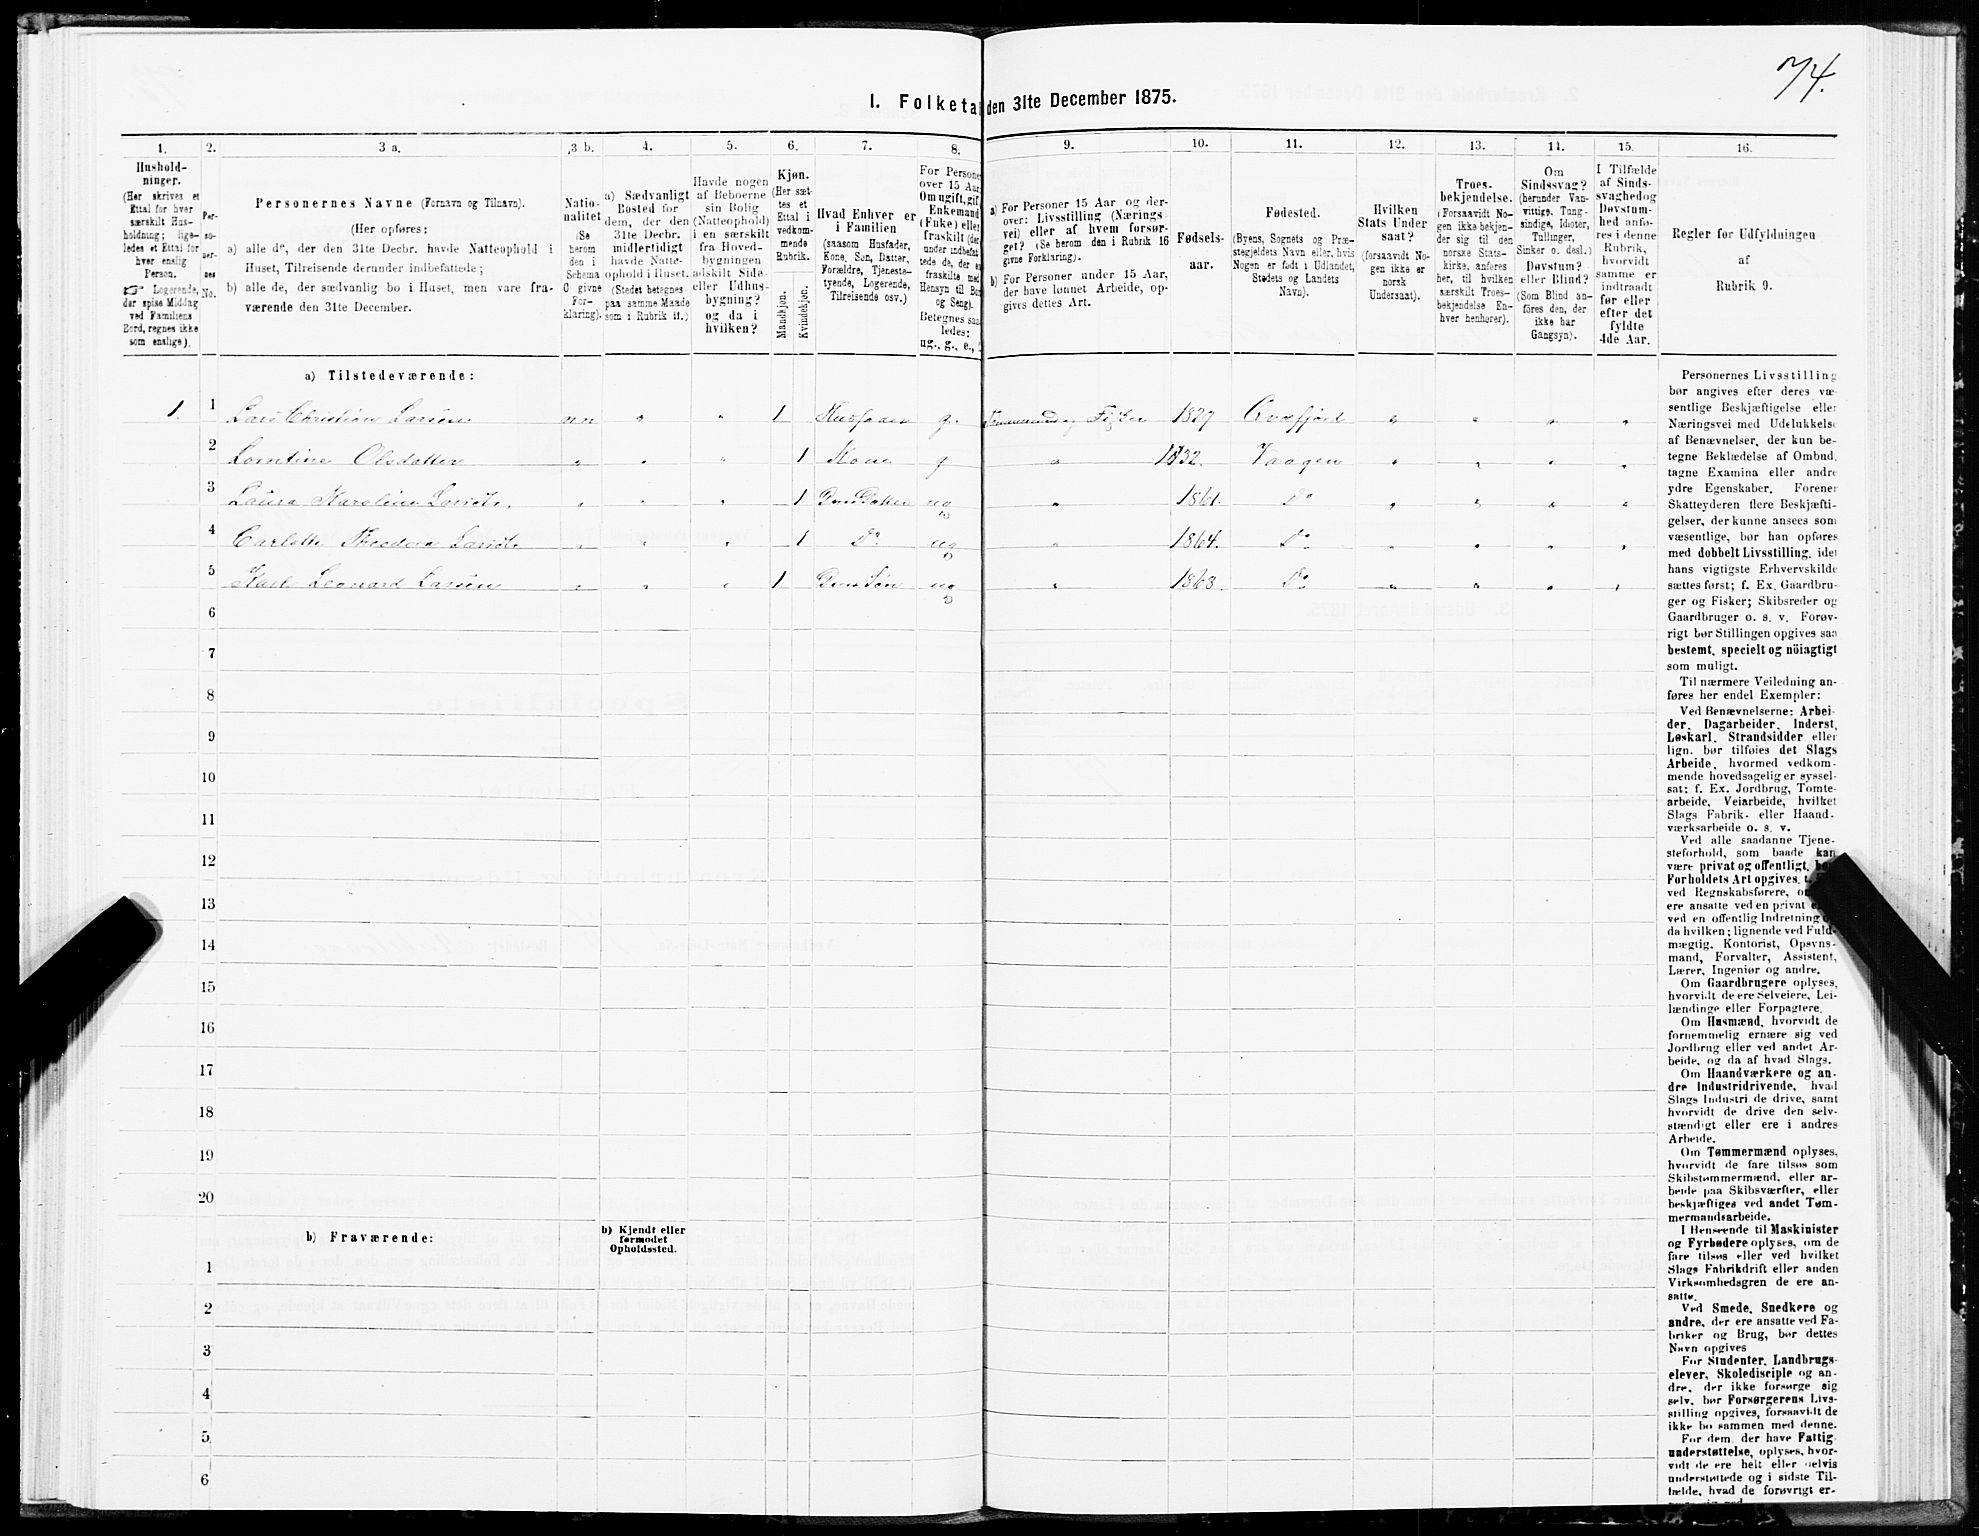 74.
I. Folketal den 31te December 1875.
1. 2. 3 a. 3 b. 4. 5. 6. 7. 8. 9. 10. 11. 12. 13. 14. 15. 16.
Hushold-
ninger.
(Her skrives et
Ettal for hver
særskilt Hus-
holdning; lige-
ledes et Ettal for
hver enslig
Person.
☞ Logerende,
der spise Middag
ved Familiens
Bord, regnes ikke
som enslige).
Per-
so-
ner-
nes
No.
Personernes Navne (Fornavn og Tilnavn).
(Her opføres:
a) alle de, der den 31te Decbr. havde Natteophold i
Huset, Tilreisende derunder indbefattede;
b) alle de, der sædvanlig bo i Huset, men vare fra-
værende den 31te December.
Natio-
nalitet
(Se
herom
den i
Schema
O givne
For-
klaring).
a) Sædvanligt
Bosted for
dem, der den
31te Decbr.
midlertidigt
havde Natte-
ophold i Huset.
(Stedet betegnes
paa samme Maade
som i Rubrik 11.)
Havde nogen
af Beboerne
sin Bolig
(Natteophold)
i en særskilt
fra Hoved-
bygningen
adskilt Side-
eller Udhus-
bygning?
og da i
hvilken?
Kjøn.
(Her sæt-
tes et
Ettal i
vedkom-
mende
Rubrik.
Mandkjøn.
Kvindekjøn.
Hvad Enhver er
i Familien
(saasom Husfader,
Kone, Søn, Datter,
Forældre, Tjeneste-
tyende, Logerende,
Tilreisende osv.)
For Persone
over 15 Aar
Om ugift, gif
Enkemand
(Enke) eller
fraskilt (der
under indbefat
tede de, der er
fraskilte med
Hensyn til Bor
og Seng).
Betegnes saa
ledes:
ug., g., e.,
a) For Personer 15 Aar og der-
over: Livsstilling (Nærings-
vei) eller af hvem forsør-
get? (Se herom den i Rubrik 16
givne Forklaring).
b) For Personer under 15 Aar,
der have lønnet Arbeide, op-
gives dettes Art.
Fødsels-
aar.
Fødested.
(Byens, Sognets og Præ-
stegjeldets Navn eller, hvis
Nogen er født i Udlandet,
Stedets og Landets
Navn).
Hvilken
Stats Under
saat?
(forsaavidt No-
gen ikke er
norsk
Undersaat).
Troes-
bekjendelse.
(Forsaavidt No-
gen ikke bekjen-
der sig til den
norske Stats-
kirke, anføres
her, til hvilken
særskilt Troes-
bekjendelse En-
hver henhører).
Om
Sindssvag?
(herunder Van-
vittige, Tung-
sindige, Idioter,
Tullinger,
Sinker o. desl.)
Døvstum?
eller Blind?
(Som Blind an-
føres den, der
ikke har
Gangsyn).
I Tilfælde
af Sinds-
svaghed og
Døvstum-
hed anfø-
res i denne
Rubrik,
hvorvidt
samme er
indtraadt
før eller
efter det
fyldte
4de Aar.
Regler for Udfyldningen
af
Rubrik 9.
a) Tilstedeværende:
1. 1 Lars Christian Larsen nn " " 1 Husfader g. Tømmermand og Fisker 1829 Qvæfjord " " " "
2 Lorntine Olsdatter " " " 1 Kone g " 1832. Vaagen " " " "
3 Laura Karoline Larsdt. " " " 1 Deres Datter ug " 1861. Do " " " "
4 Carlotte Theodora Larsdt. " " " 1 Do ug " 1864. Do " " " "
5 Karl Leonard Larsen " " " 1 Deres Søn ug " 1868. Do " " " "
6
7
8
9
10
11
12
13
14
15
16
17
18
19
20
b) Fraværende:
b) Kjendt eller
formodet
Opholdssted.
1
2
3
4
5
6
Personernes Livsstilling
bør angives efter deres væ-
sentlige Beskjæftigelse eller
Næringsvei med Udelukkelse
af Benævnelser, der kun be-
tegne Beklædelse af Ombud,
tagne Examina eller andre
ydre Egenskaber. Forener
Skatteyderen flere Beskjæfti-
gelser, der kunne ansees som
væsentlige, bør han opføres
med dobbelt Livsstilling, idet
hans vigtigste Erhvervskilde
sættes først; f. Ex. Gaardbru-
ger og Fisker; Skibsreder og
Gaardbruger o. s. v. Forøv-
rigt bør Stillingen opgives saa
bestemt, specielt og nöiagtigt
som muligt.
Til nærmere Veiledning an-
føres her endel Exempler:
Ved Benævnelserne: Arbei-
der, Dagarbeider, Inderst,
Løskarl, Strandsidder eller
lign. bør tilføies det Slags
Arbeide, hvormed vedkom-
mende hovedsagelig er syssel-
sat; f. Ex. Jordbrug, Tomte-
arbeide, Veiarbeide, hvilket
Slags Fabrik- eller Haand-
værksarbeide o. s. v.
Ved alle saadanne Tjene-
steforhold, som baade kan
være privat og offentligt, bør
Forholdets Art opgives,
ved Regnskabsførere, om
ere ansatte ved en privat
ved en offentlig Indretning
da hvilken; lignende ved Fuld-
mægtig, Kontorist, Opsyns-
mand, Forvalter, Assistent,
Lærer, Ingeniør og andre.
Om Gaardbrugere oplyses,
hvorvidt de ere Selveiere, Lei-
lændinge eller Forpagtere.
Om Husmænd, hvorvidt de
fornemmelig ernære sig ved
Jordbrug eller ved andet Ar-
beide, og da af hvad Slags.
Om Haandværkere og an-
dre Industridrivende, hvad
Slags Industri de drive, samt
hvorvidt de drive den selv-
stændigt eller ere i andres
Arbeide.
Om Tømmermænd oplyses,
hvorvidt de fare tilsøs som
Skibstømmermænd, eller ar-
beide paa Skibsværfter, eller
beskjæftiges ved andet Tøm-
mermandsarbeide.
I Henseende til Maskinister
og Fyrbødere oplyses, om de
fare tilsøs eller ved hvilket
Slags Fabrikdrift eller anden
Virksomhedsgren de ere an-
satte.
Ved Smede, Snedkere og
andre, der ere ansatte ved Fa-
briker og Brug, bør dettes
Navn opgives
For Studenter, Landbrugs-
elever, Skoledisciple og an-
dre, der ikke forsørge sig
selv, bør Forsørgerens Livs-
stilling opgives, forsaavidt de
ikke bo sammen med denne.
For dem, der have Fattig-
understøttelse, oplyses, hvor-
vidt de ere helt eller delvis
understøttede og i sidste Til-
fælde, hvad de forøvrigt er-